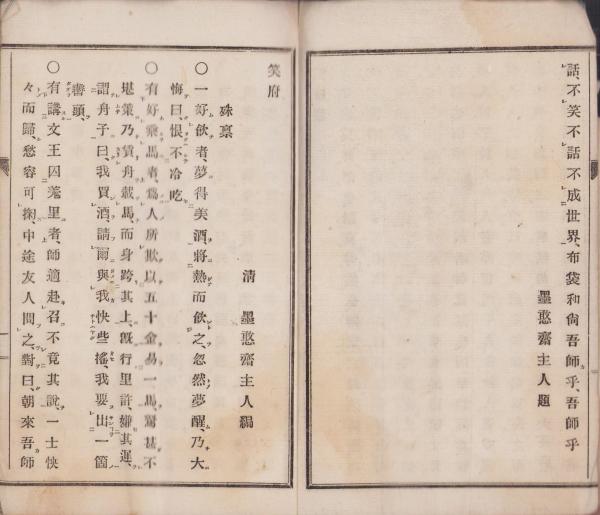 話、不笑不話不成世界、布袋和尙吾師乎、吾師乎
墨憨齋主人題
笑府
淸　墨憨齋主人編
殊禀
〇一好飮者、夢得美酒、將熱而飮之、忽然夢醒、乃大
悔曰、恨不冷吃
〇有好乘馬者、爲人所欺、以五十金易一馬、駑甚不
堪策、乃賃舟載馬、而身跨其上、旣行里許、嫌其遲、
謂舟子曰、我買酒、請爾與我快些搖、我要出一箇
轡頭、
〇有講文王囚羑里者、師適赴召、不竟其說、一士怏
々而歸、愁容可掬、中途友人問之、對曰、朝來吾師